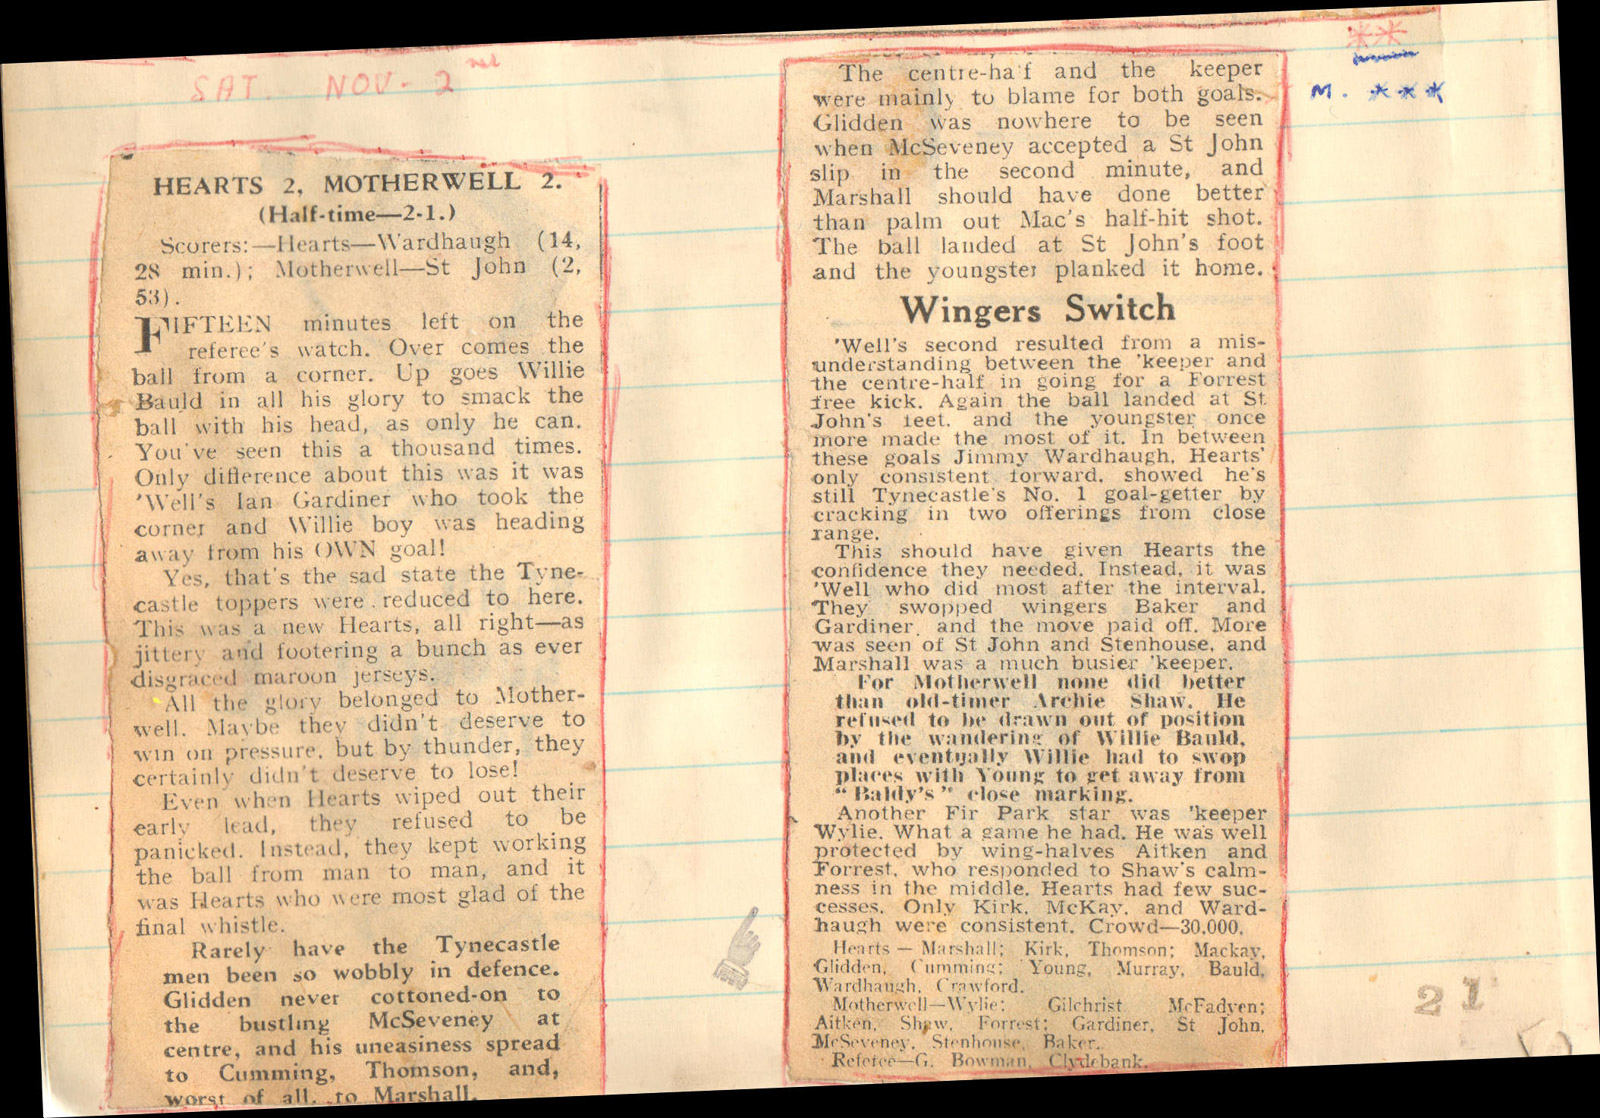 SAT. NOV- 2nd
HEARTS 2, MOTHERWELL 2.
(Half-time—2-1.)
Scorers:—Hearts—Wardhaugh (14,
28 min.); Motherwell—St John (2,
53).
FIFTEEN minutes left on the
referee's watch. Over comes the
ball from a corner. Up goes Willie
Bauld in all his glory to smack the
ball with his head, as only he can.
You've seen this a thousand times.
Only difference about this was it was
'Well's Ian Gardiner who took the
corner and Willie boy was heading
away from his OWN goal!
Yes, that's the sad state the Tyne-
castle toppers were reduced to here.
This was a new Hearts, all right—as
jittery and footering a bunch as ever
disgraced maroon jerseys.
All the glory belonged to Mother-
well. Maybe they didn't deserve to
win on pressure, but by thunder, they
certainly didn't deserve to lose!
Even when Hearts wiped out their
early lead, they refused to be
panicked. Instead, they kept working
the ball from man to man, and it
was Hearts who were most glad of the
final whistle.
Rarely have the Tynecastle
men been so wobbly in defence.
Glidden never cottoned-on to
the bustling McSeveney at
centre, and his uneasiness spread
to Cumming, Thomson, and,
worst of all, to Marshall.
The centre-half and the keeper
were mainly to blame for both goals.
Glidden was nowhere to be seen
when McSeveney accepted a St John
slip in the second minute, and
Marshall should have done better
than palm out Mac's half-hit shot.
The ball landed at St John's foot
and the youngster planked it home.
Wingers Switch
'Well's second resulted from a mis-
understanding between the 'keeper and
the centre-half in going for a Forrest
free kick. Again the ball landed at St
John's feet, and the youngster once
more made the most of it. In between
these goals Jimmy Wardhaugh, Hearts'
only consistent forward, showed he's
still Tynecastle's No. 1 goal-getter by
cracking in two offerings from close
range.
This should have given Hearts the
confidence they needed. Instead, it was
'Well who did most after the interval.
They swopped wingers Baker and
Gardiner, and the move paid off. More
was seen of St John and Stenhouse, and
Marshall was a much busier 'keeper.
For Motherwell none did better
than old-timer Archie Shaw. He
refused to be drawn out of position
by the wandering of Willie Bauld,
and eventually Willie had to swop
places with Young to get away from
"Baldy's" close marking.
Another Fir Park star was 'keeper
Wylie. What a game he had. He was well
protected by wing-halves Aitken and
Forrest, who responded to Shaw's calm-
ness in the middle. Hearts had few suc-
cesses. Only Kirk, McKay, and Ward-
haugh were consistent. Crowd—30,000.
Hearts — Marshall; Kirk, Thomson; Mackay,
Glidden, Cumming; Young, Murray, Bauld,
Wardhaugh, Crawford.
Motherwell—Wylie; Gilchrist McFadyen;
Aitken, Shaw, Forrest; Gardiner, St John,
McSeveney, Stenhouse, Baker.
Referee—G. Bowman, Clydebank.
**
M. ***
21